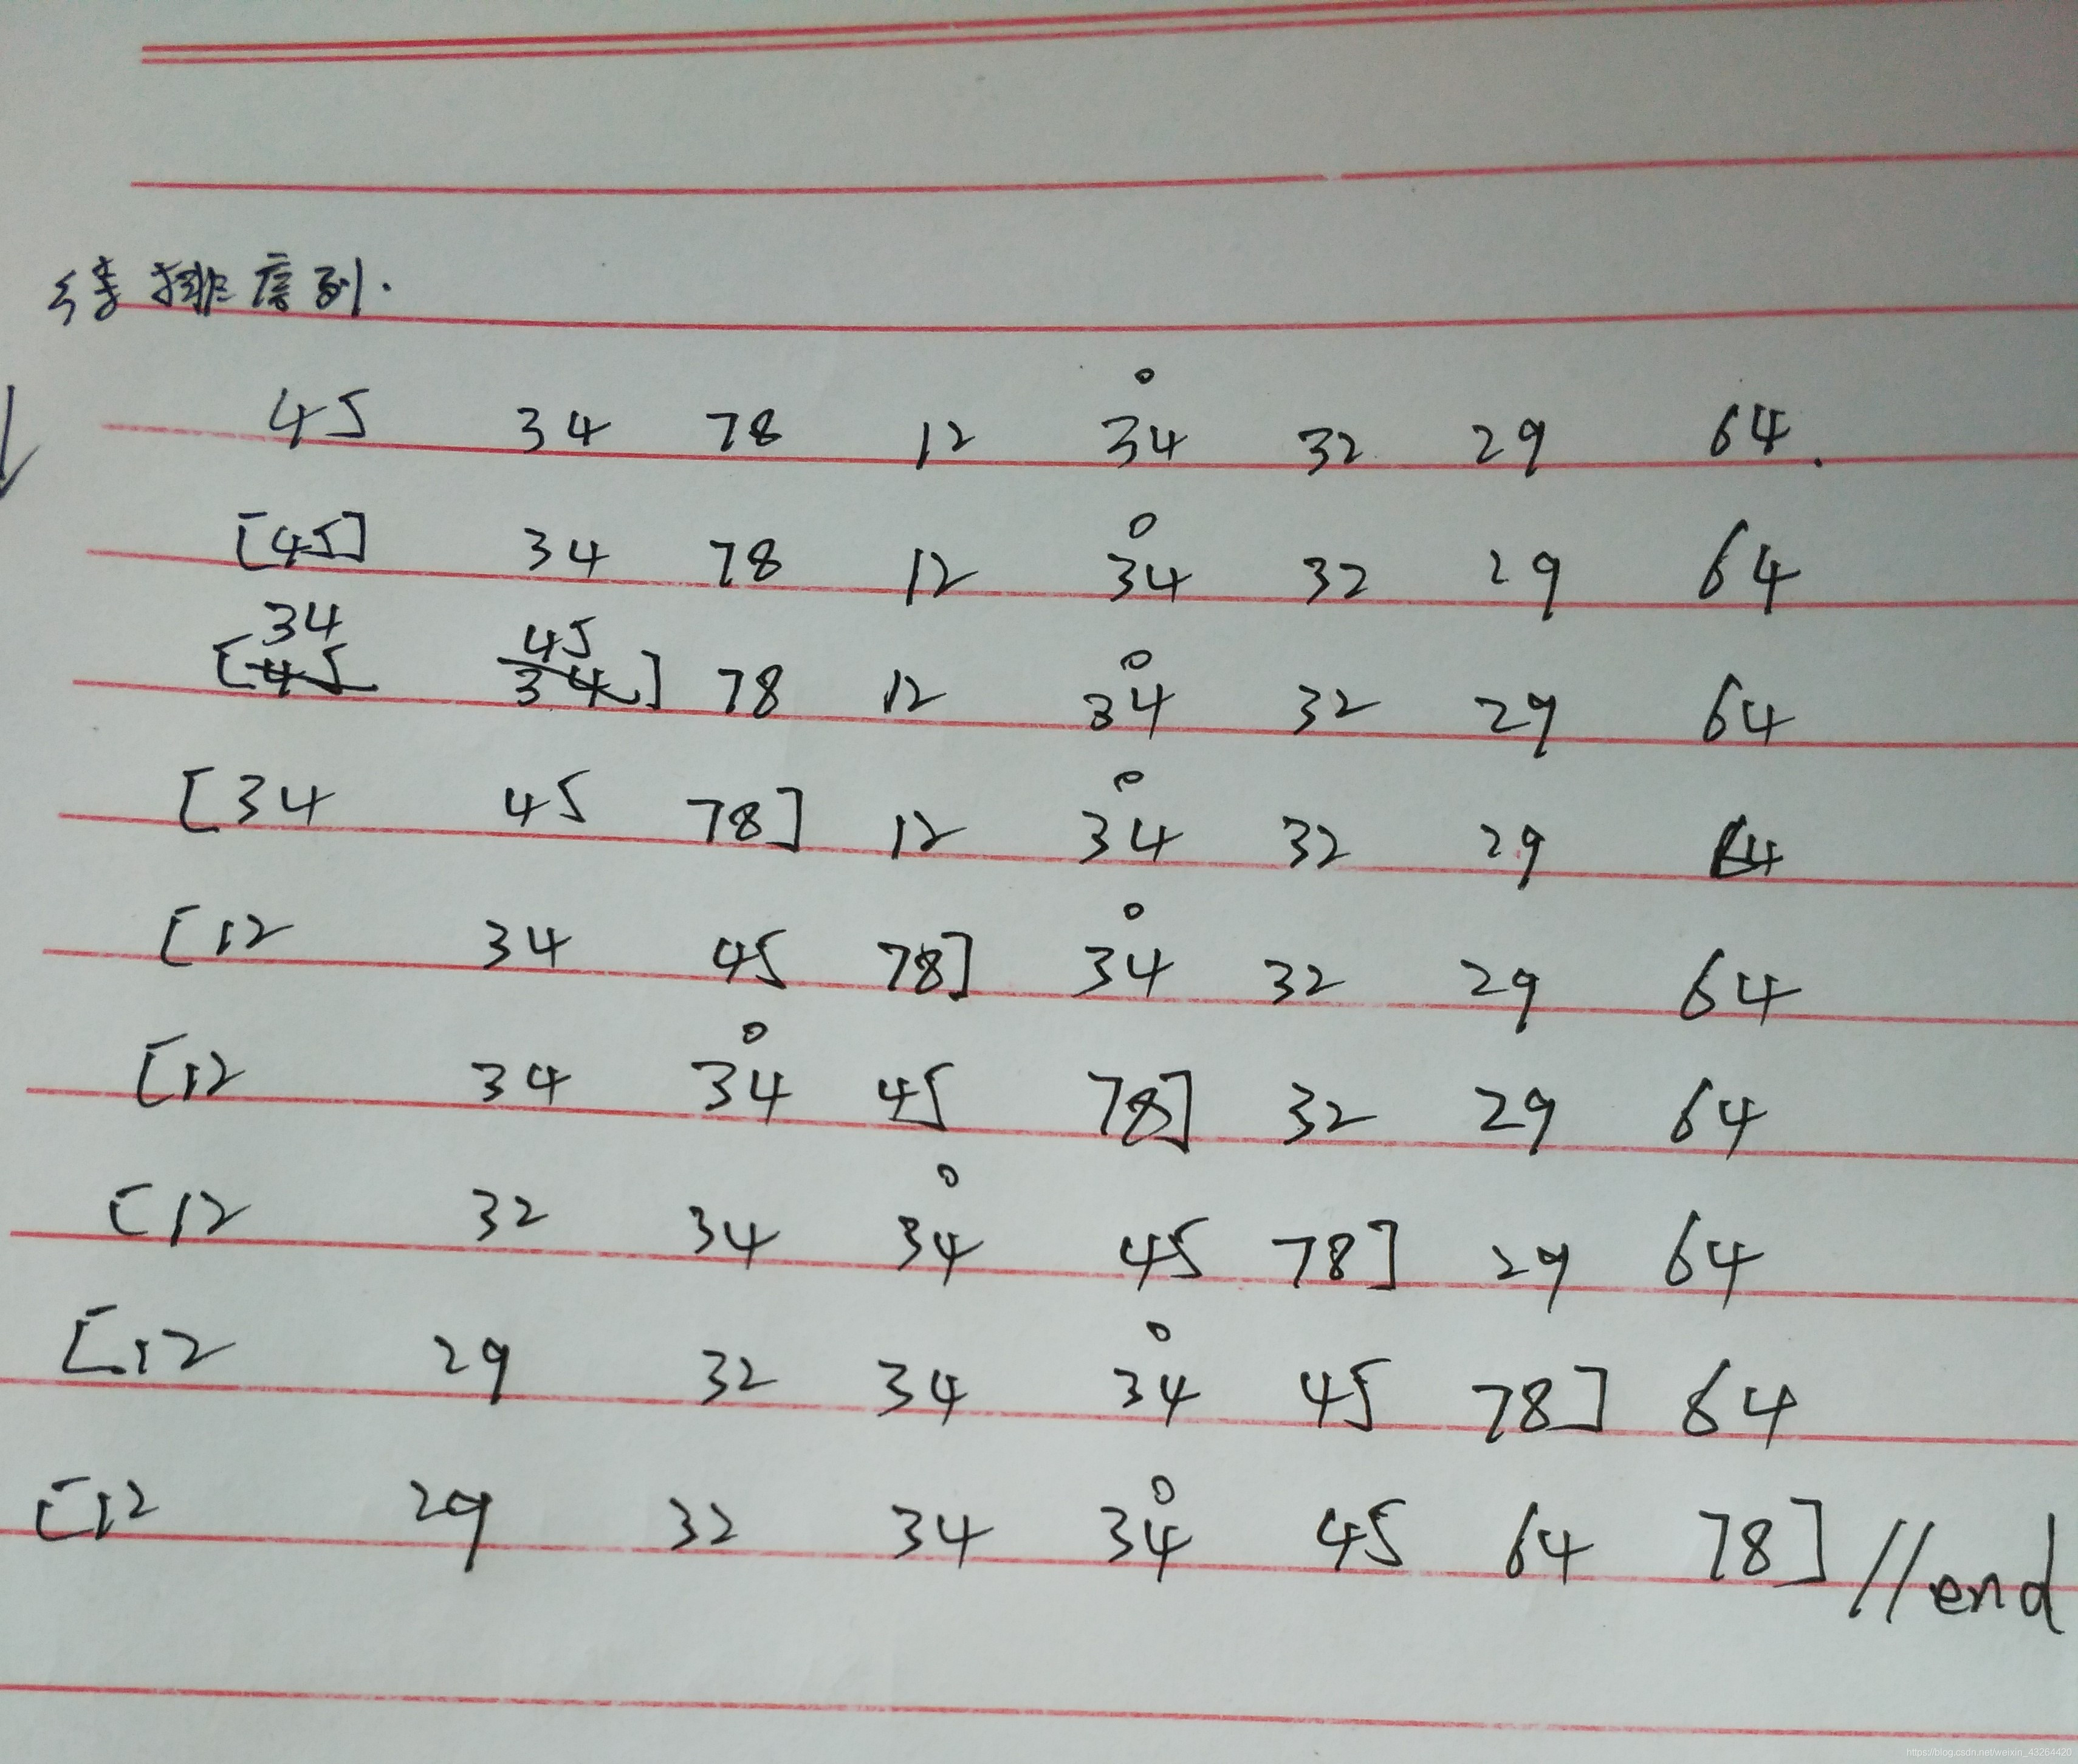 待排序列.
45 34 78 12 3̊4 32 29 64.
[45] 34 78 12 3̊4 32 29 64
34 45
[45 34] 78 12 3̊4 32 29 64
[34 45 78] 12 3̊4 32 29 64
[12 34 45 78] 3̊4 32 29 64
[12 34 3̊4 45 78] 32 29 64
[12 32 34 3̊4 45 78] 29 64
[12 29 32 34 3̊4 45 78] 64
[12 29 32 34 3̊4 45 64 78] //end
https://blog.csdn.net/weixin_43264420